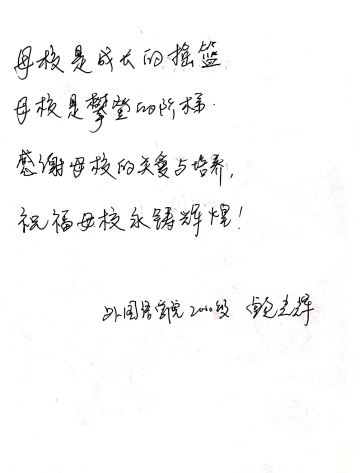 母校是成长的摇篮
母校是攀登的阶梯.
感谢母校的关爱与培养,
祝福母校永铸辉煌!
外国语学院2000级 鲍志辉